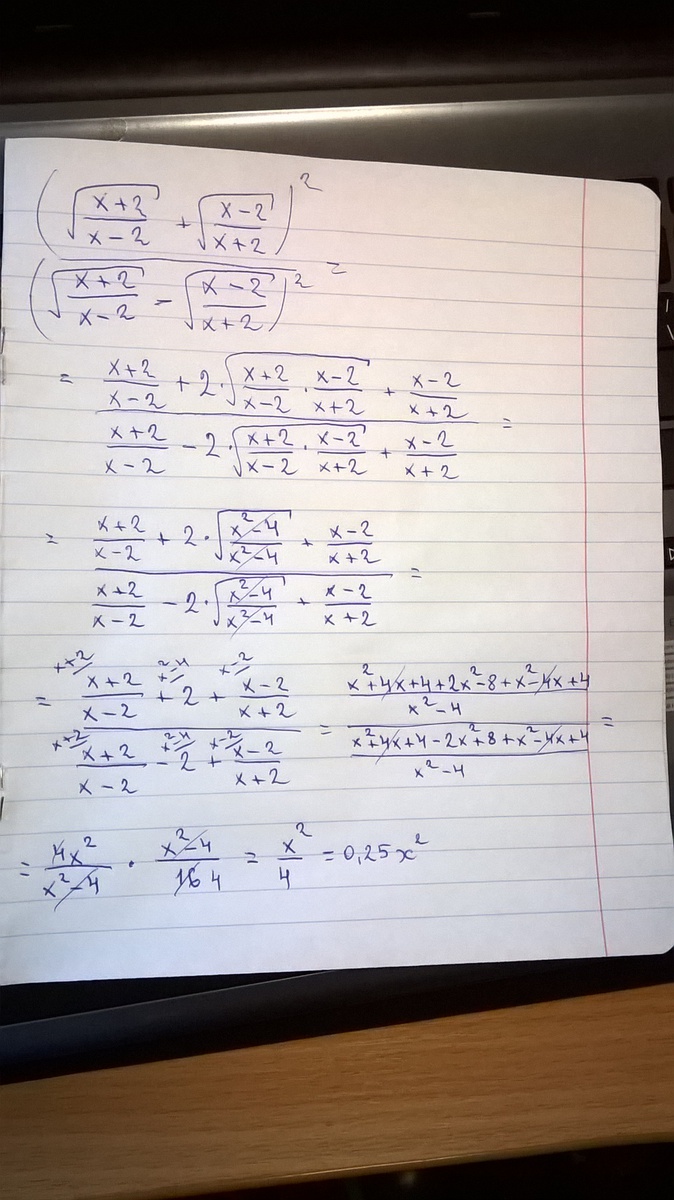 (√((x+2)/(x-2)) + √((x-2)/(x+2)))² / (√((x+2)/(x-2)) - √((x-2)/(x+2)))² =
= ((x+2)/(x-2) + 2·√((x+2)/(x-2) · (x-2)/(x+2)) + (x-2)/(x+2)) / ((x+2)/(x-2) - 2·√((x+2)/(x-2) · (x-2)/(x+2)) + (x-2)/(x+2)) =
= ((x+2)/(x-2) + 2·√((x²-4)/(x²-4)) + (x-2)/(x+2)) / ((x+2)/(x-2) - 2·√((x²-4)/(x²-4)) + (x-2)/(x+2)) =
= (ˣ⁺²⫽ (x+2)/(x-2) + ˣ²⁻⁴⫽ 2 + ˣ⁻²⫽ (x-2)/(x+2)) / (ˣ⁺²⫽ (x+2)/(x-2) - ˣ²⁻⁴⫽ 2 + ˣ⁻²⫽ (x-2)/(x+2)) = ((x²+4x+4+2x²-8+x²-4x+4)/(x²-4)) / ((x²+4x+4-2x²+8+x²-4x+4)/(x²-4)) =
= 4x²/(x²-4) · (x²-4)/16 4 = x²/4 = 0,25x²